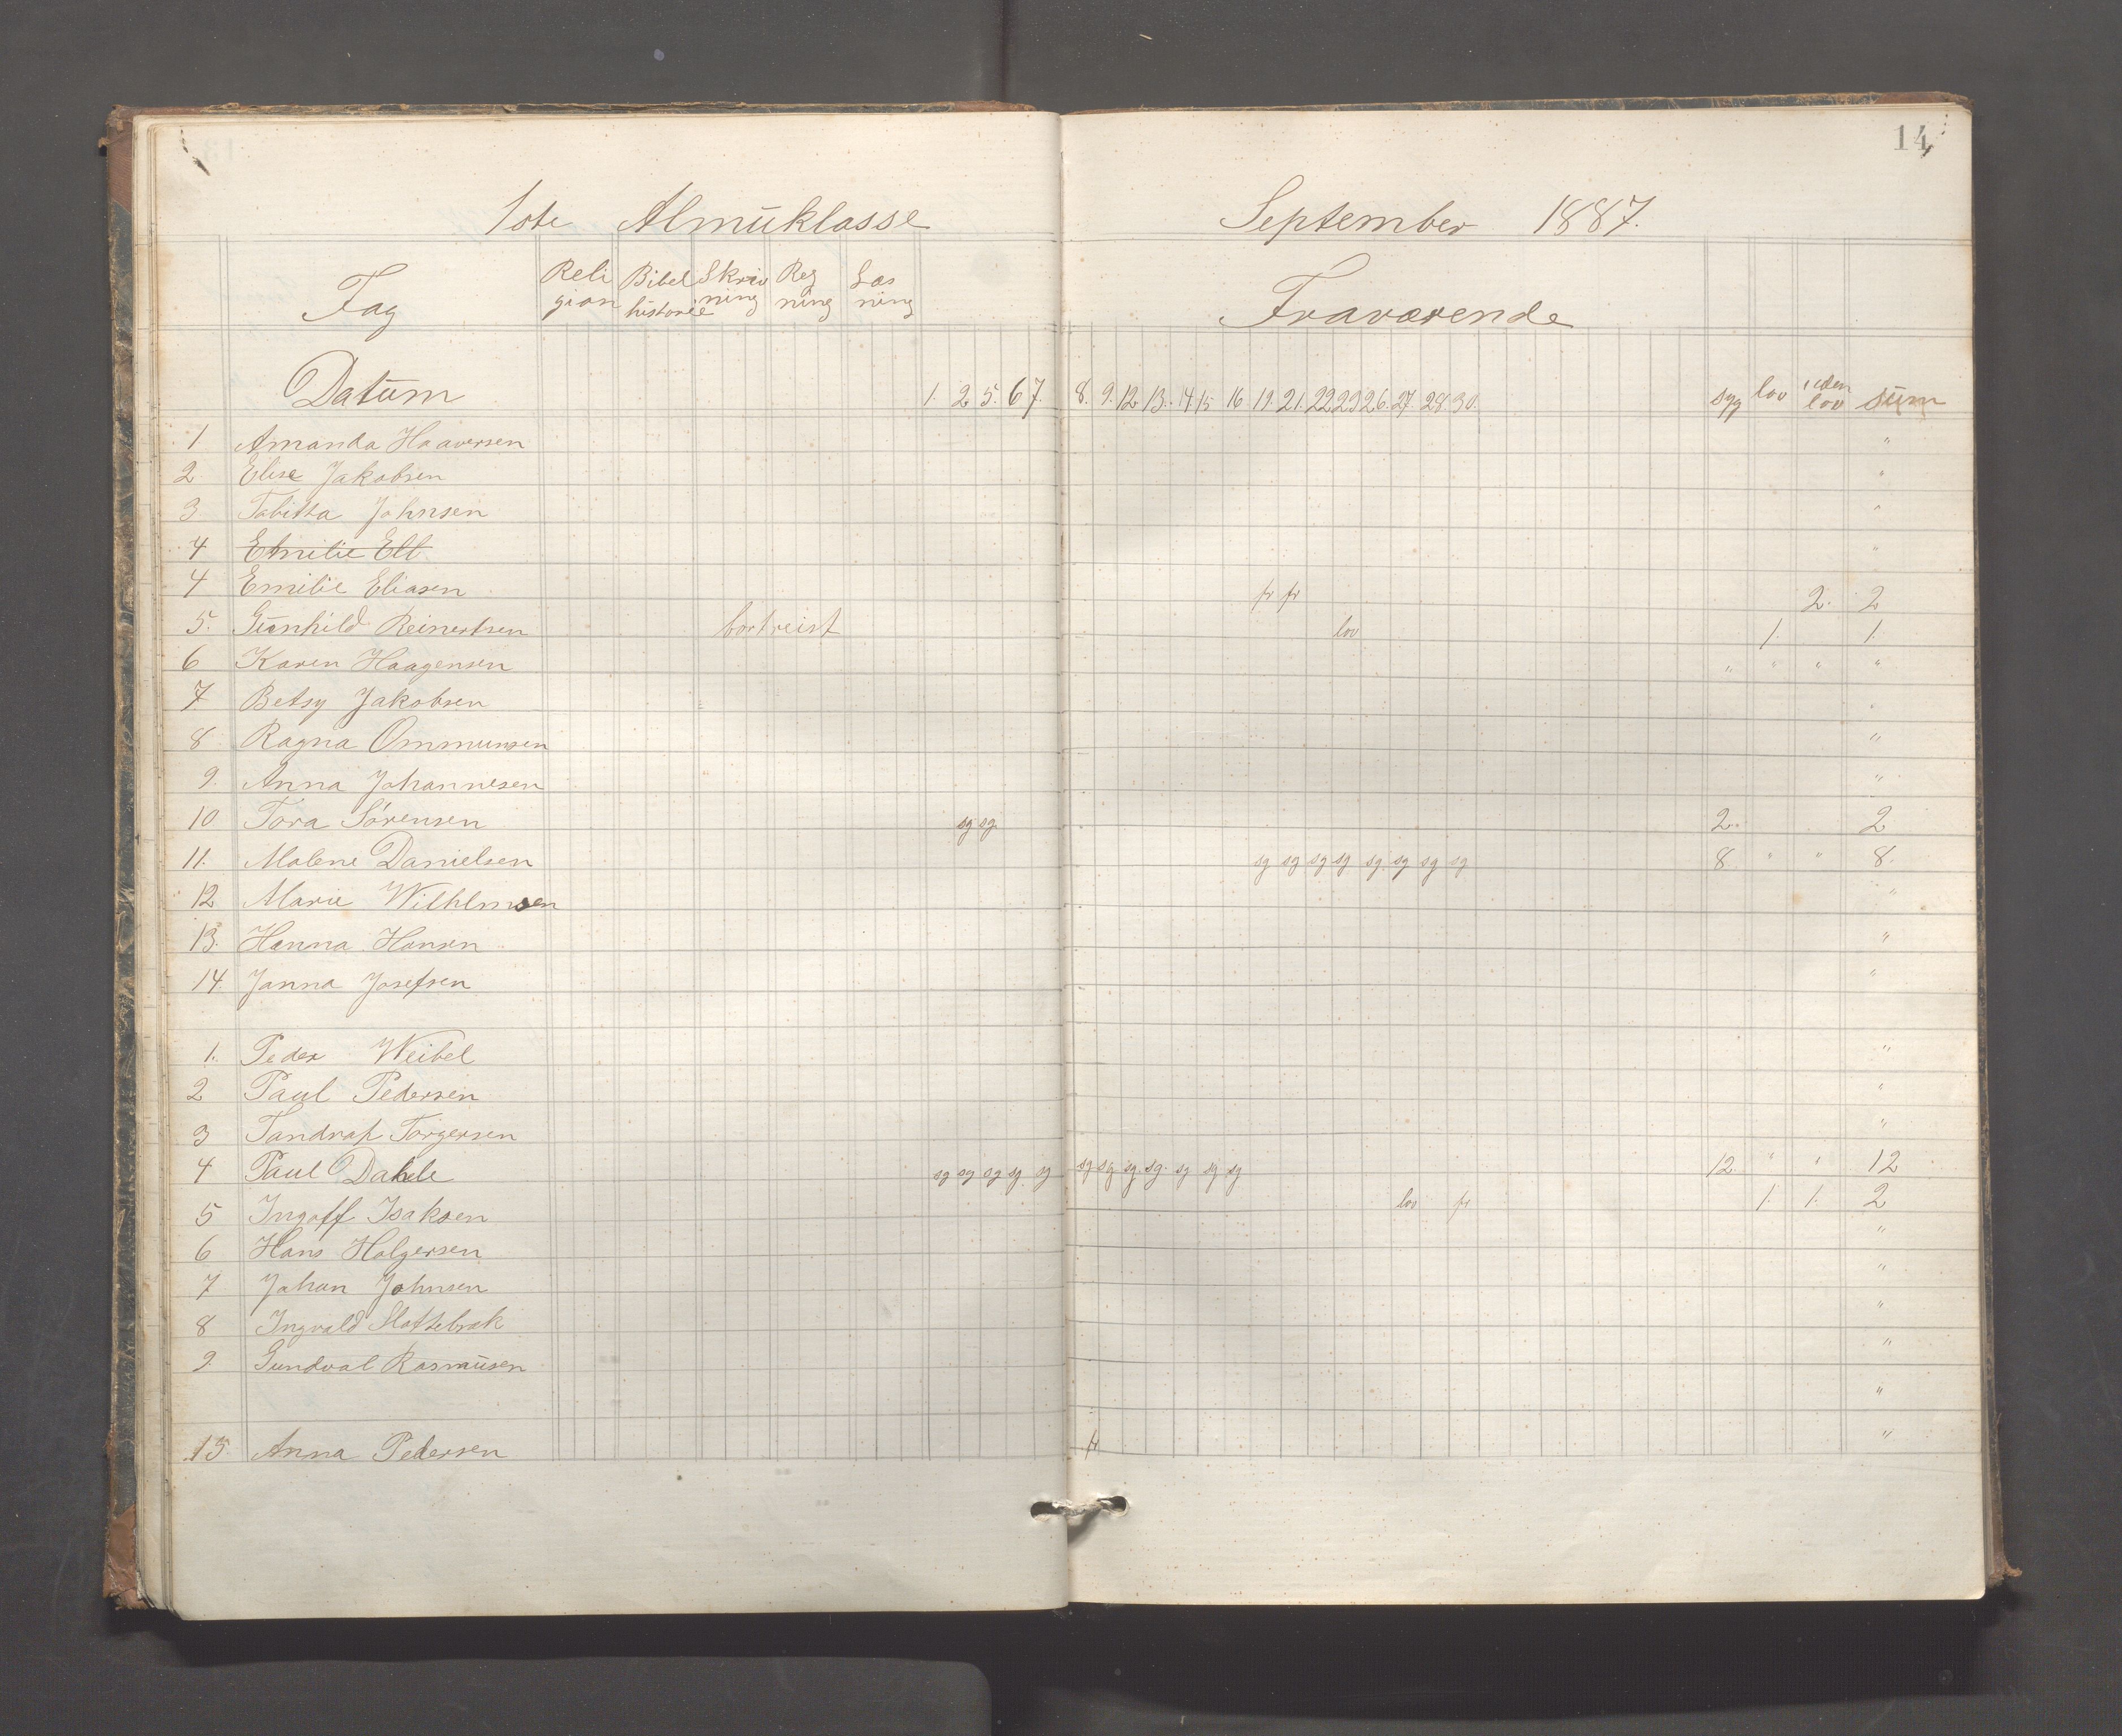 14
1ste Almuklasse September 1887.
Fag Reli gion Bibel historie Skriv ning Reg ning Læs ning Fraværende
Datum 1. 2 5. 6 7. 8. 9. 12 13. 14 15 16 19. 21. 22 23 26. 27. 28. 30. syg lov uden lov sum
1 Amanda Haaversen "
2. Elise Jakobsen "
3. Tabitta Johnsen "
4 Emilie Ell "
4 Emilie Eliasen fr fr 2. 2
5. Gunhild Reinertsen bortreist lov 1. 1.
6 Karen Haagensen " " " "
7 Betsy Jakobsen "
8 Ragna Ommunsen "
9. Anna Johannesen "
10 Tora Sørensen sg sg. 2. 2
11. Malene Danielsen sg sg sg sg sg. sg sg sg 8 " " 8.
12 Marie Wilhlmsen "
13. Hanna Hansen "
14 Janna Josefsen "
1. Peder Weibel "
2 Paul Pedersen "
3 Tandrap Torgersen "
4 Paul Dahle sg sg sg sg sg sg sg sg. sg. sg sg sg 12. " " 12
5 Ingolf Isaksen lov fr 1. 1. 2
6 Hans Holgersen "
7 Johan Johnsen "
8 Ingvald Slottebrak "
9. Gundval Rasmusen "
"
15. Anna Pedersen fr "